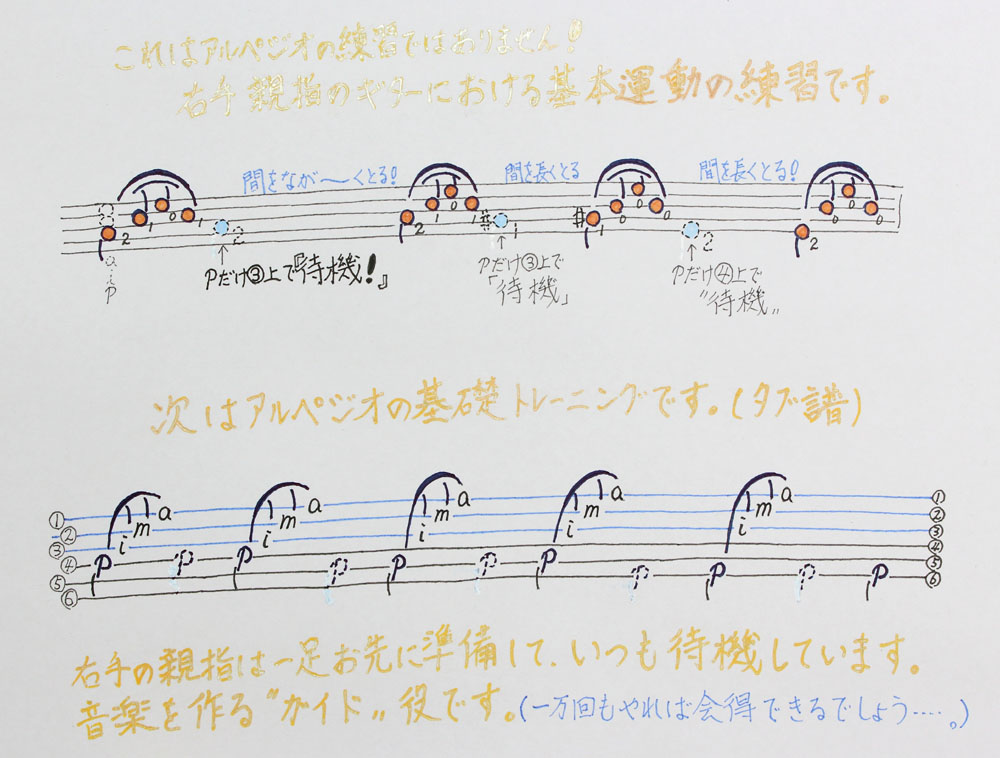 これはアルペジオの練習ではありません!
右手親指のギターにおける基本運動の練習です。
間をなが〜くとる! 間を長くとる 間を長くとる!
2 1 0 1 2 2 1 0 1 # 1 # 1 0 0 0 2 2 0 0 0
Pだけ③上で『待機!』 Pだけ③上で「待機」 Pだけ④上で〝待機〟
P
次はアルペジオの基礎トレーニングです。(タブ譜)
① a a a a a ①
② m m m m m ②
③ i i i i i ③
④ P P P P P P P P P P P ④
⑤ ⑤
⑥ ⑥
右手の親指は一足お先に準備して、いつも待機しています。
音楽を作る〝ガイド〟役です。(一万回もやれば会得できるでしょう……。)